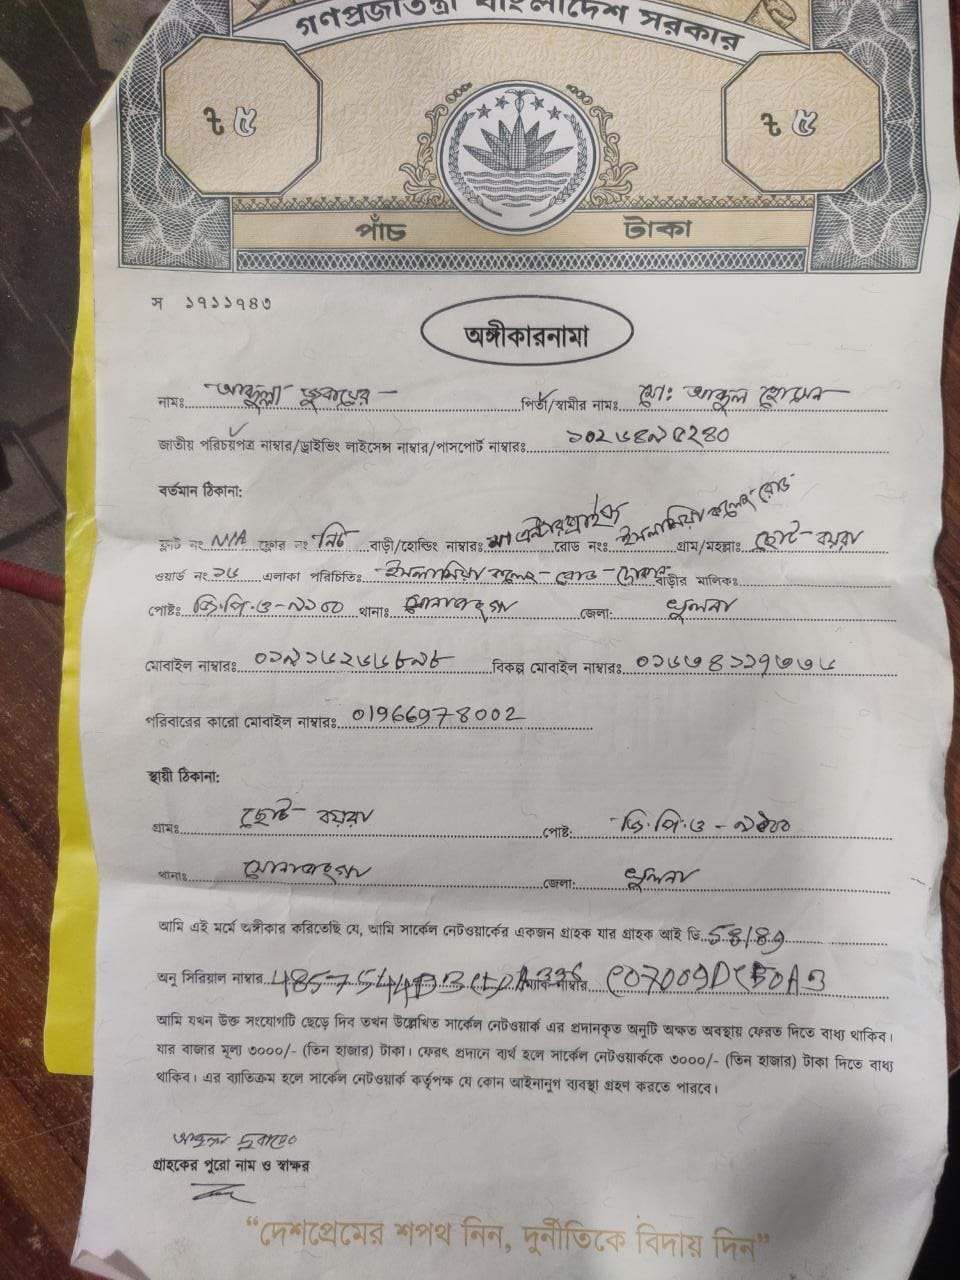 গণপ্রজাতন্ত্রী বাংলাদেশ সরকার
৳ ৫ ৳ ৫
পাঁচ টাকা
স ১৭১১৭৪৩
অঙ্গীকারনামা
নামঃ পিতা/স্বামীর নামঃ মো: হোসেন
জাতীয় পরিচয়পত্র নাম্বার/ড্রাইভিং লাইসেন্স নাম্বার/পাসপোর্ট নাম্বারঃ
বর্তমান ঠিকানা:
ফ্লাট নং N/A ফ্লোর নং নিচ বাড়ী/হোল্ডিং নাম্বারঃ মা এন্টারপ্রাইজ রোড নংঃ ইসলামিয়া কলেজ রোড গ্রাম/মহল্লাঃ ছোট বয়রা
ওয়ার্ড নং ১৬ এলাকা পরিচিতিঃ ইসলামিয়া কলেজ রোড বাড়ীর মালিকঃ
পোষ্টঃ জি.পি.ও-৯১০০ থানাঃ সোনাডাঙ্গা জেলা: খুলনা
মোবাইল নাম্বারঃ ০১৯১৬২৬৬৮৯৮ বিকল্প মোবাইল নাম্বারঃ
পরিবারের কারো মোবাইল নাম্বারঃ 01966978002
স্থায়ী ঠিকানা:
গ্রামঃ ছোট বয়রা পোষ্ট: জি.পি.ও -
থানাঃ সোনাডাঙ্গা জেলা: খুলনা
আমি এই মর্মে অঙ্গীকার করিতেছি যে, আমি সার্কেল নেটওয়ার্কের একজন গ্রাহক যার গ্রাহক আই ডি
অনু সিরিয়াল নাম্বার ম্যাক নাম্বার
আমি যখন উক্ত সংযোগটি ছেড়ে দিব তখন উল্লেখিত সার্কেল নেটওয়ার্ক এর প্রদানকৃত অনুটি অক্ষত অবস্থায় ফেরত দিতে বাধ্য থাকিব।
যার বাজার মূল্য ৩০০০/- (তিন হাজার) টাকা। ফেরৎ প্রদানে ব্যর্থ হলে সার্কেল নেটওয়ার্ককে ৩০০০/- (তিন হাজার) টাকা দিতে বাধ্য
থাকিব। এর ব্যাতিক্রম হলে সার্কেল নেটওয়ার্ক কর্তৃপক্ষ যে কোন আইনানুগ ব্যবস্থা গ্রহণ করতে পারবে।
গ্রাহকের পুরো নাম ও স্বাক্ষর
“দেশপ্রেমের শপথ নিন, দুর্নীতিকে বিদায় দিন”